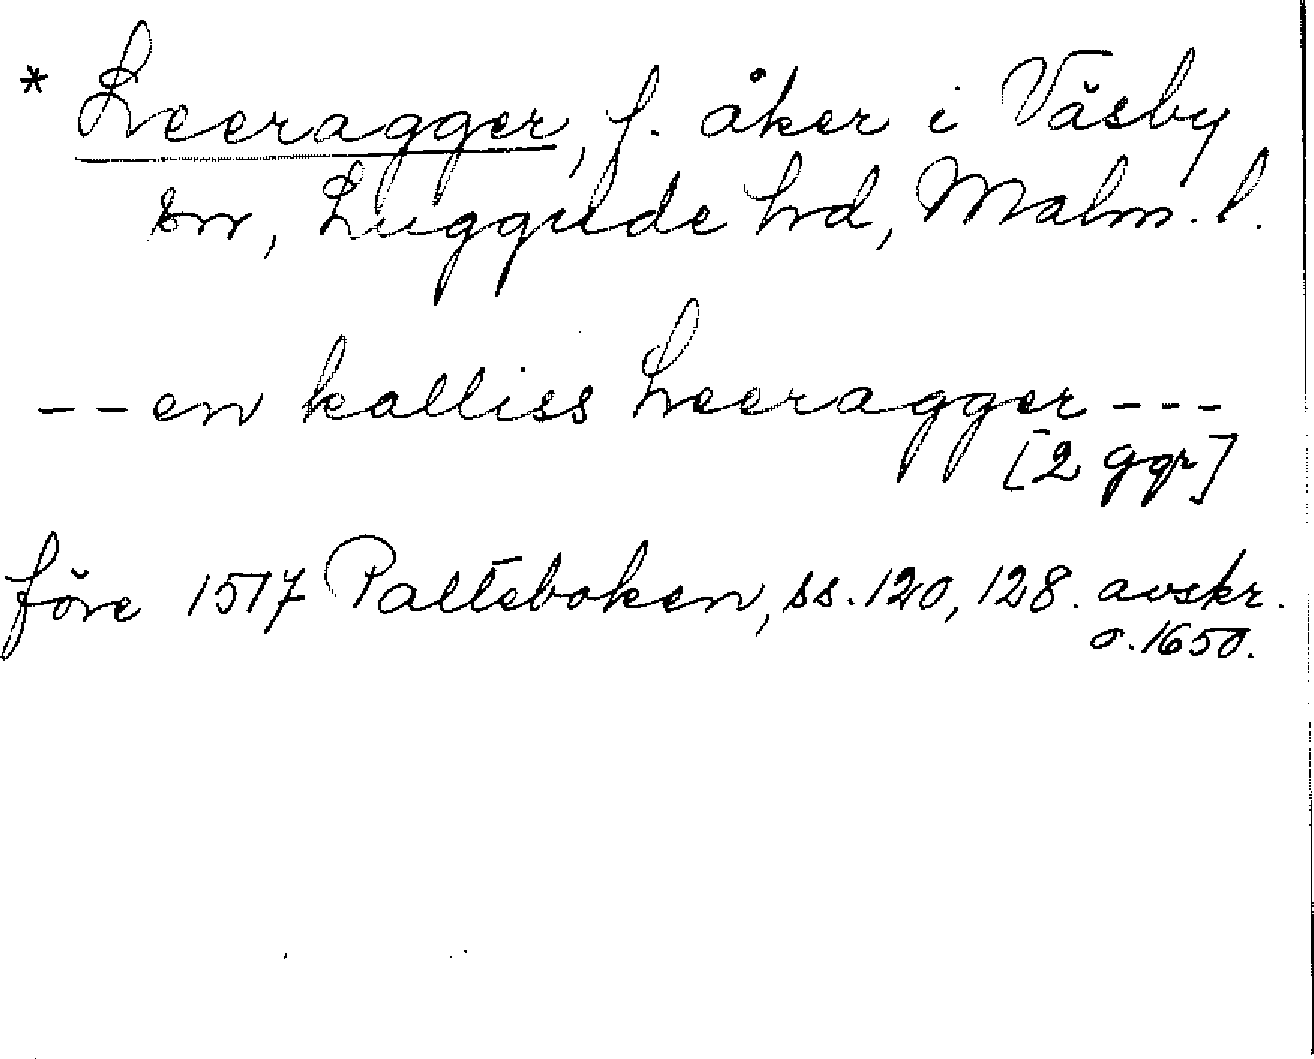 * Leeragger, f. åker i Väsby
sn, Luggude hd, Malm. l.
-- en kalliss Leeragger ---
[2 ggr]
före 1517 Palteboken, ss. 120, 128. avskr.
o. 1650.